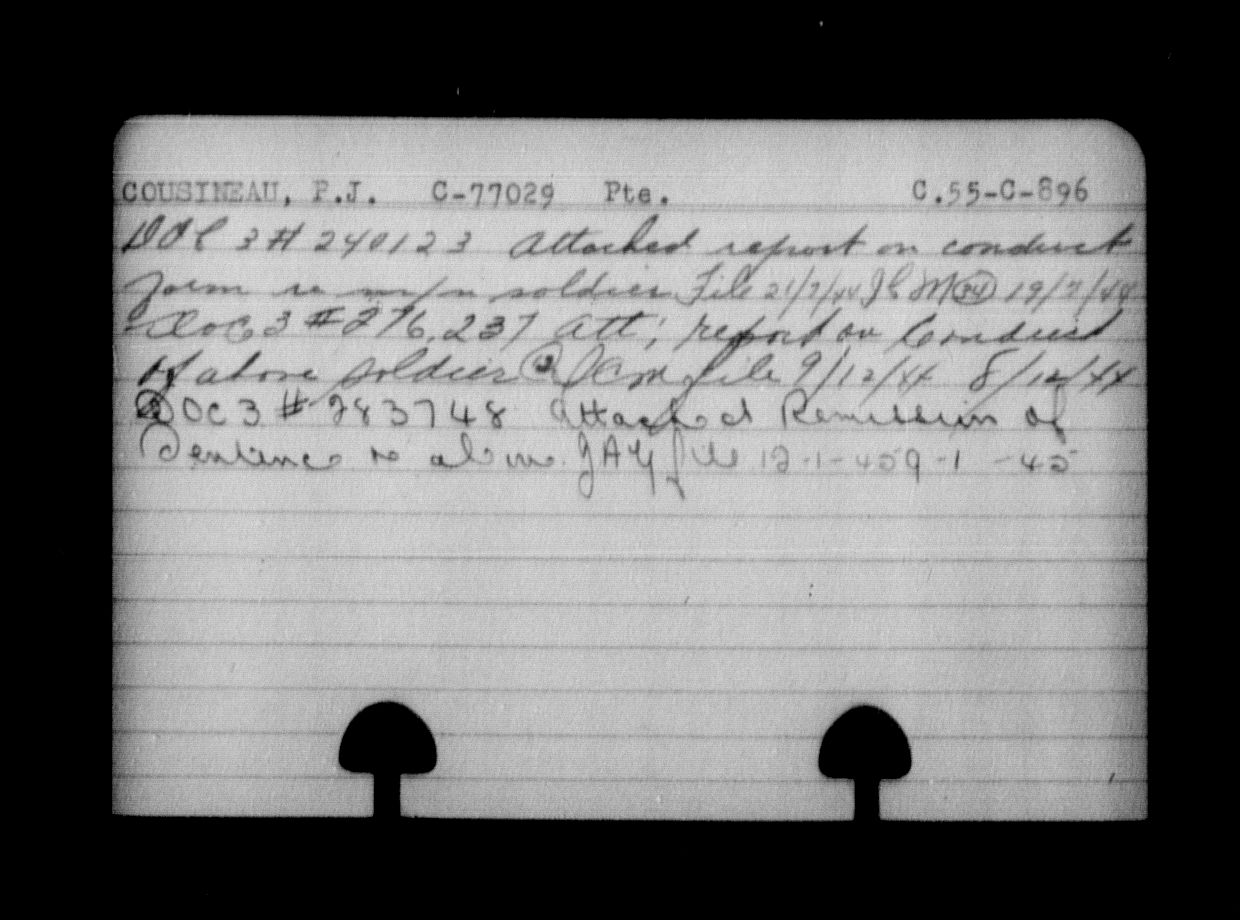 COUSINEAU, P.J. C-77029 Pte. C.55-C-896
DOC 3 # 240123 Attached report on conduct
form re m/n soldier File 21/7/44 34 19/7/44
Doc 3 # 276,237 att; report on Conduct
of above soldier file 9/12/44 8/12/44
Doc 3 # 283748 Attached Remission of
Sentence re above JAG file 12-1-45 9-1-45